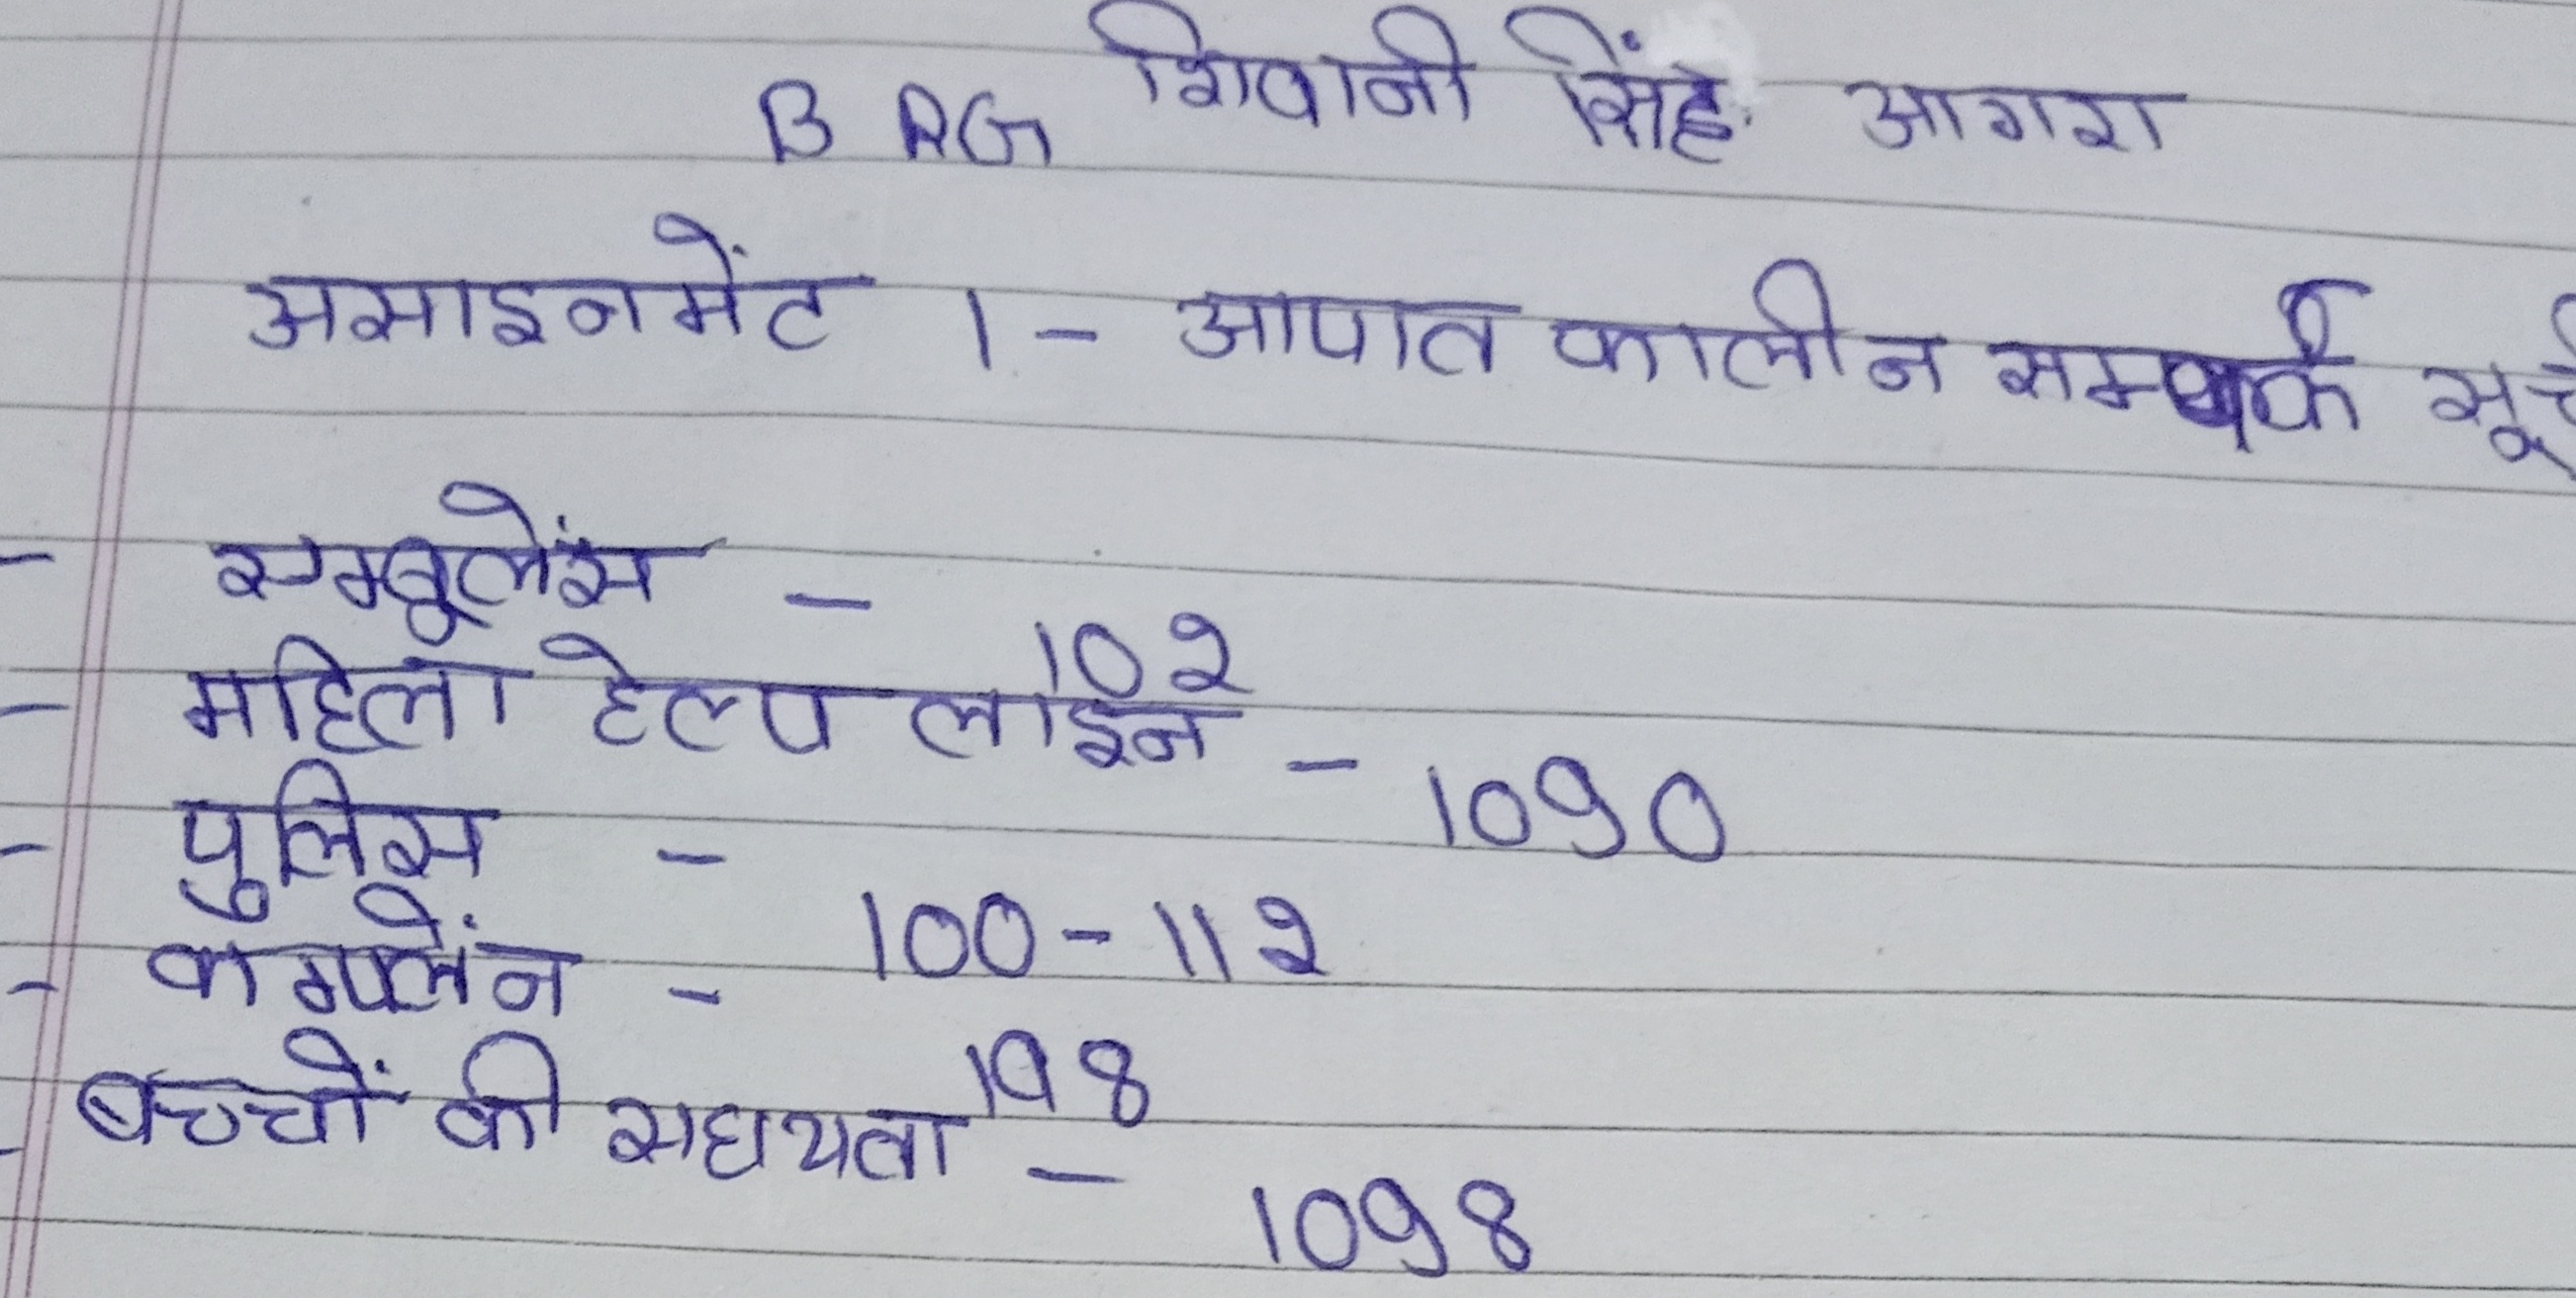 BRG शिवानी सिंह आगरा
असाइनमेंट 1 - आपात कालीन सम्पर्क
- एम्बूलेंस - 102
- महिला हेल्प लाइन - 1090
- पुलिस - 100-112
- कम्पलेंन - 198
- बच्चों की सहायता - 1098